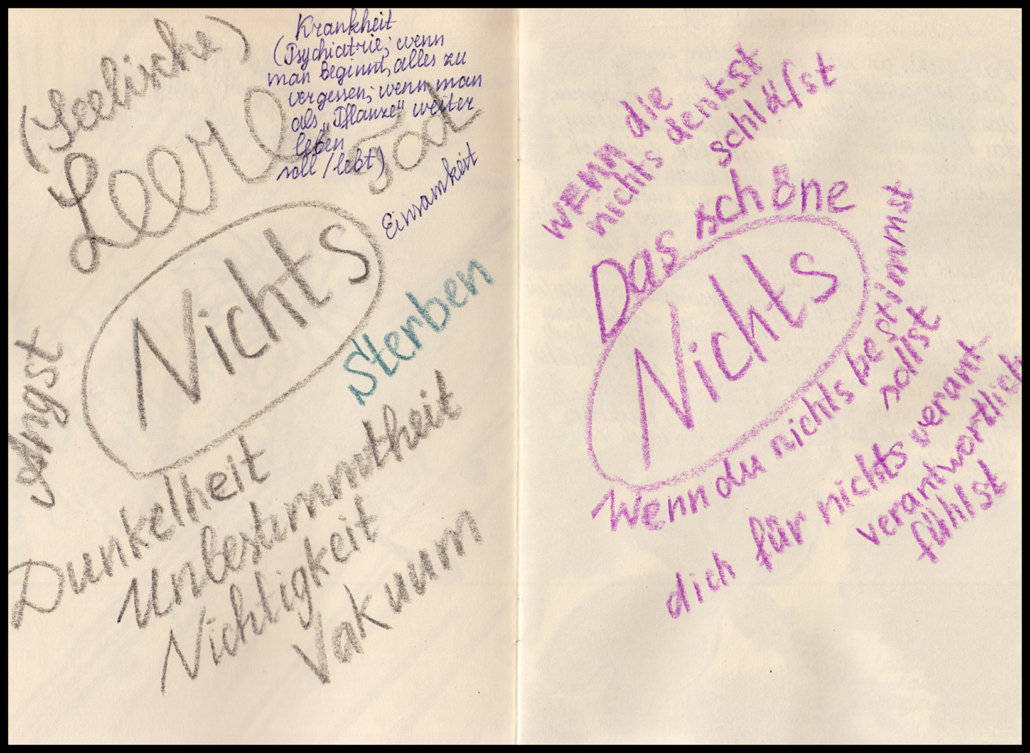 (Seelische)
Leere
Krankheit
(Psychiatrie; wenn
man beginnt, alles zu
vergessen; wenn man
als „Pflanze“ weiter
leben
soll / lebt)
Tod
Einsamkeit
Nichts
Sterben
Angst
Dunkelheit
Unbestimmtheit
Nichtigkeit
Vakuum
wenn die
nichts denkst
schläfst
Das schöne
Nichts
Wenn du nichts bestimmst
sollst
dich für nichts verant
verantwortlich
fühlst